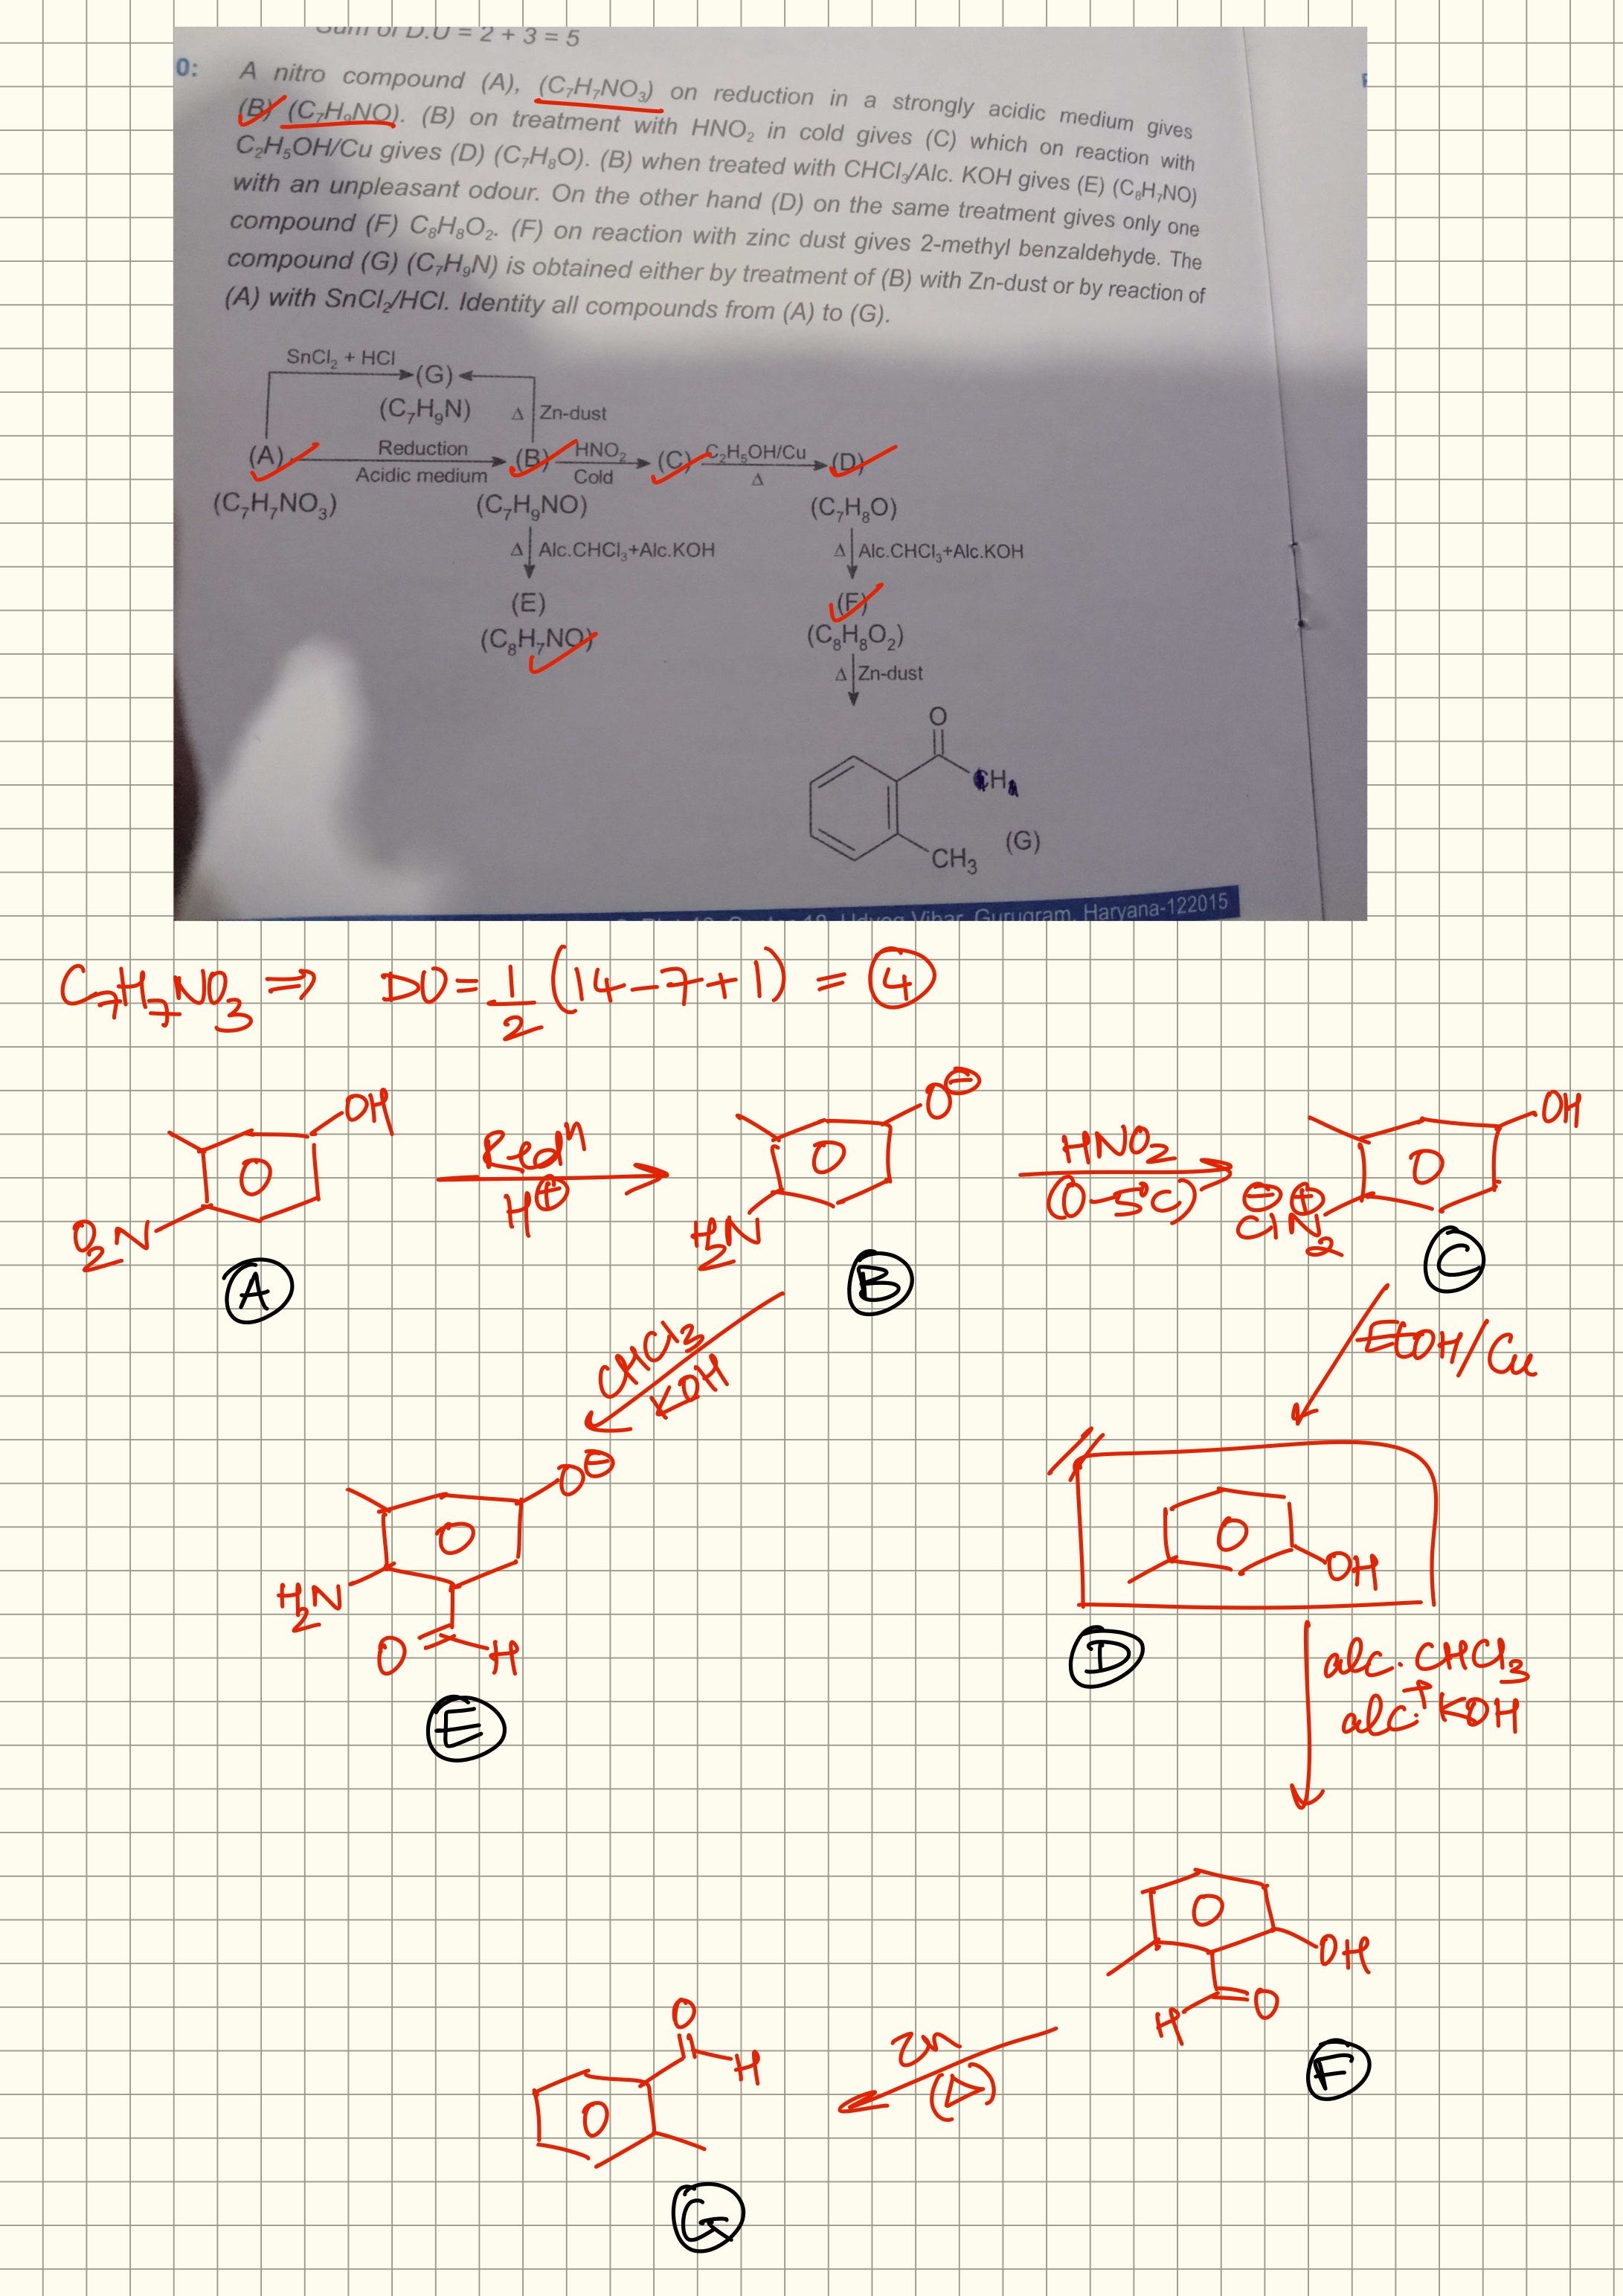 Sum of D.U = 2 + 3 = 5
0: A nitro compound (A), (C₇H₇NO₃) on reduction in a strongly acidic medium gives
(B) (C₇H₉NO). (B) on treatment with HNO₂ in cold gives (C) which on reaction with
C₂H₅OH/Cu gives (D) (C₇H₈O). (B) when treated with CHCl₃/Alc. KOH gives (E) (C₈H₇NO)
with an unpleasant odour. On the other hand (D) on the same treatment gives only one
compound (F) C₈H₈O₂. (F) on reaction with zinc dust gives 2-methyl benzaldehyde. The
compound (G) (C₇H₉N) is obtained either by treatment of (B) with Zn-dust or by reaction of
(A) with SnCl₂/HCl. Identity all compounds from (A) to (G).
SnCl₂ + HCl
(G)
(C₇H₉N)
Δ Zn-dust
(A) Reduction (B) HNO₂ (C) C₂H₅OH/Cu (D)
Acidic medium Cold Δ
(C₇H₇NO₃) (C₇H₉NO) (C₇H₈O)
Δ Alc.CHCl₃+Alc.KOH Δ Alc.CHCl₃+Alc.KOH
(E) (F)
(C₈H₇NO) (C₈H₈O₂)
Δ Zn-dust
O
CH₃ (G)
Udyog Vihar, Gurugram, Haryana-122015
C₇H₇NO₃ ⇒ DU = 1/2 (14-7+1) = 4
OH O⊖ OH
Redⁿ HNO₂
H⊕ (0-5°C)
O₂N H₂N ⊖ ⊕
ClN₂
A B C
CHCl₃ EtOH/Cu
KOH
O⊖
H₂N OH
O H
E D
alc. CHCl₃
+
alc. KOH
OH
H O
F
Zn
(Δ)
O
H
G